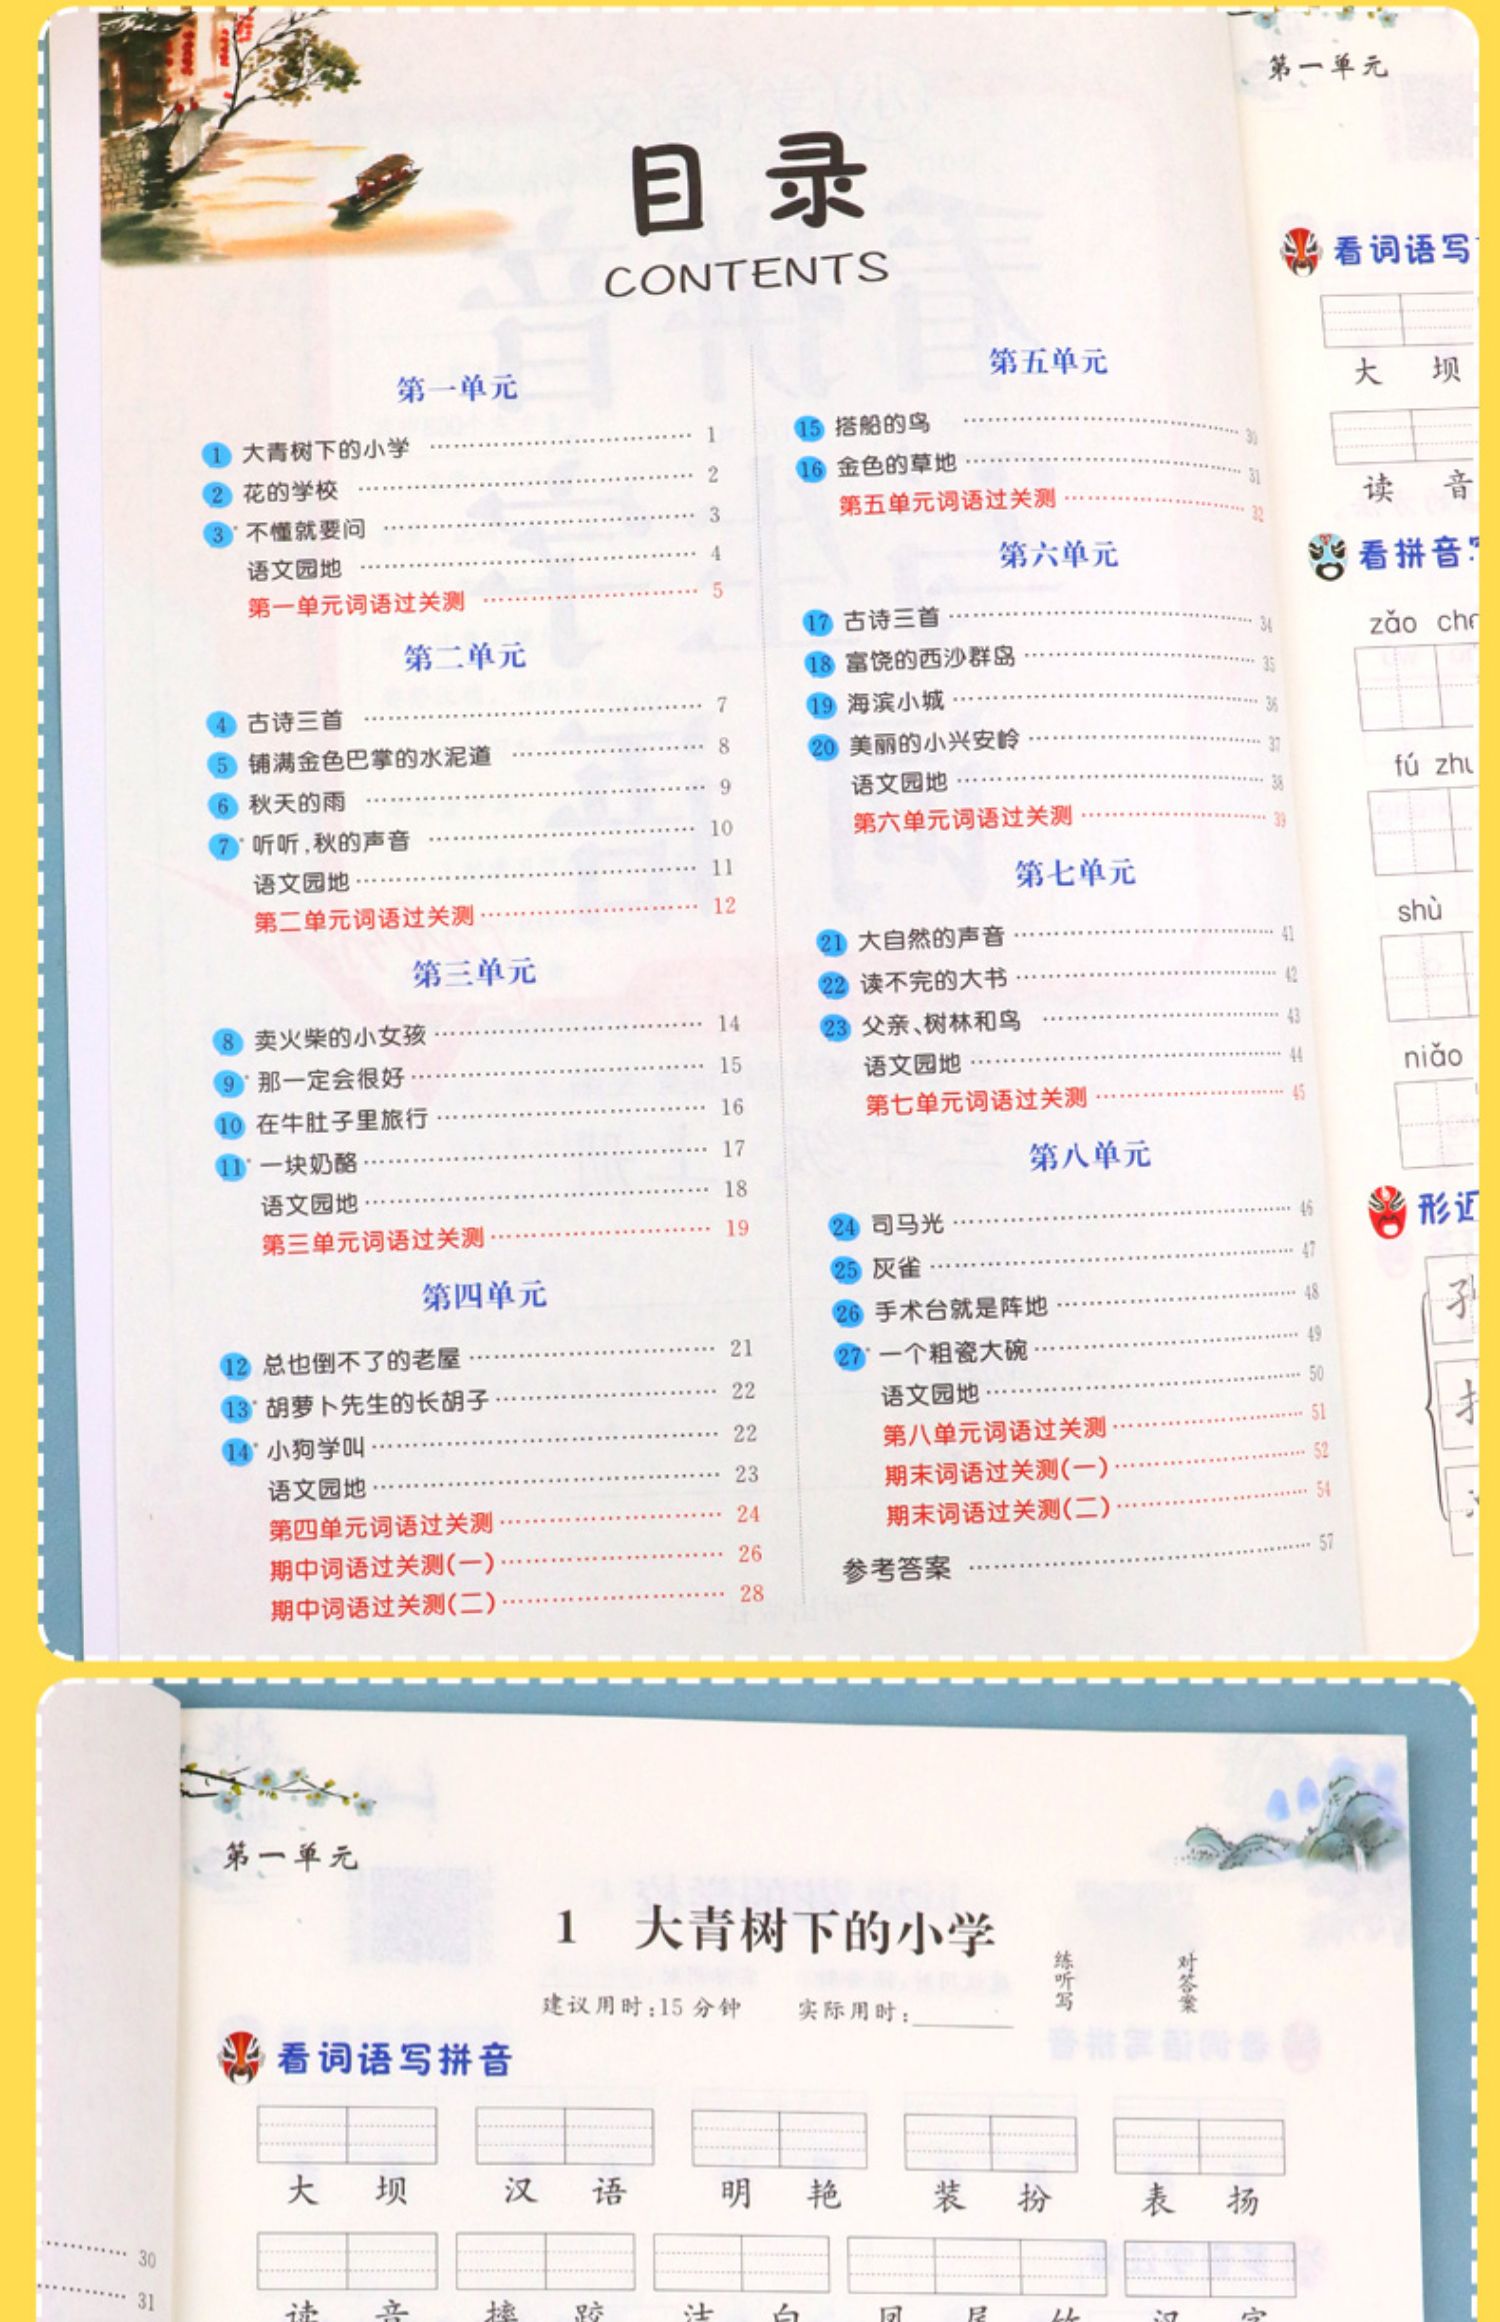 目录
CONTENTS
第一单元
1 大青树下的小学 1
2 花的学校 2
3* 不懂就要问 3
语文园地 4
第一单元词语过关测 5
第二单元
4 古诗三首 7
5 铺满金色巴掌的水泥道 8
6 秋天的雨 9
7* 听听,秋的声音 10
语文园地 11
第二单元词语过关测 12
第三单元
8 卖火柴的小女孩 14
9* 那一定会很好 15
10 在牛肚子里旅行 16
11* 一块奶酪 17
语文园地 18
第三单元词语过关测 19
第四单元
12 总也倒不了的老屋 21
13* 胡萝卜先生的长胡子 22
14* 小狗学叫 22
语文园地 23
第四单元词语过关测 24
期中词语过关测(一) 26
期中词语过关测(二) 28
第五单元
15 搭船的鸟 30
16 金色的草地 31
第五单元词语过关测 32
第六单元
17 古诗三首 34
18 富饶的西沙群岛 35
19 海滨小城 36
20 美丽的小兴安岭 37
语文园地 38
第六单元词语过关测 39
第七单元
21 大自然的声音 41
22 读不完的大书 42
23 父亲、树林和鸟 43
语文园地 44
第七单元词语过关测 45
第八单元
24 司马光 46
25 灰雀 47
26 手术台就是阵地 48
27* 一个粗瓷大碗 49
语文园地 50
第八单元词语过关测 51
期末词语过关测(一) 52
期末词语过关测(二) 54
参考答案 57
第一单元
看词语写
大坝
读音
看拼音
zǎo
fú
shù
niǎo
形近
第一单元
1 大青树下的小学
练听写
对答案
建议用时:15分钟 实际用时:
看词语写拼音
大坝 汉语 明艳 装扮 表扬
30
31